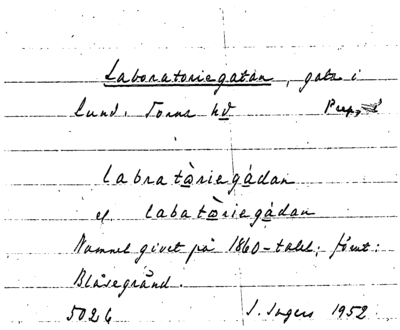 Laboratoriegatan, gata i
Lund. Torna hd Prep.
labratòriegádan
el labatòriegádan
Namnet givet på 1860-talet; förut:
Blåsegränd.
5026 I. Ingers 1952